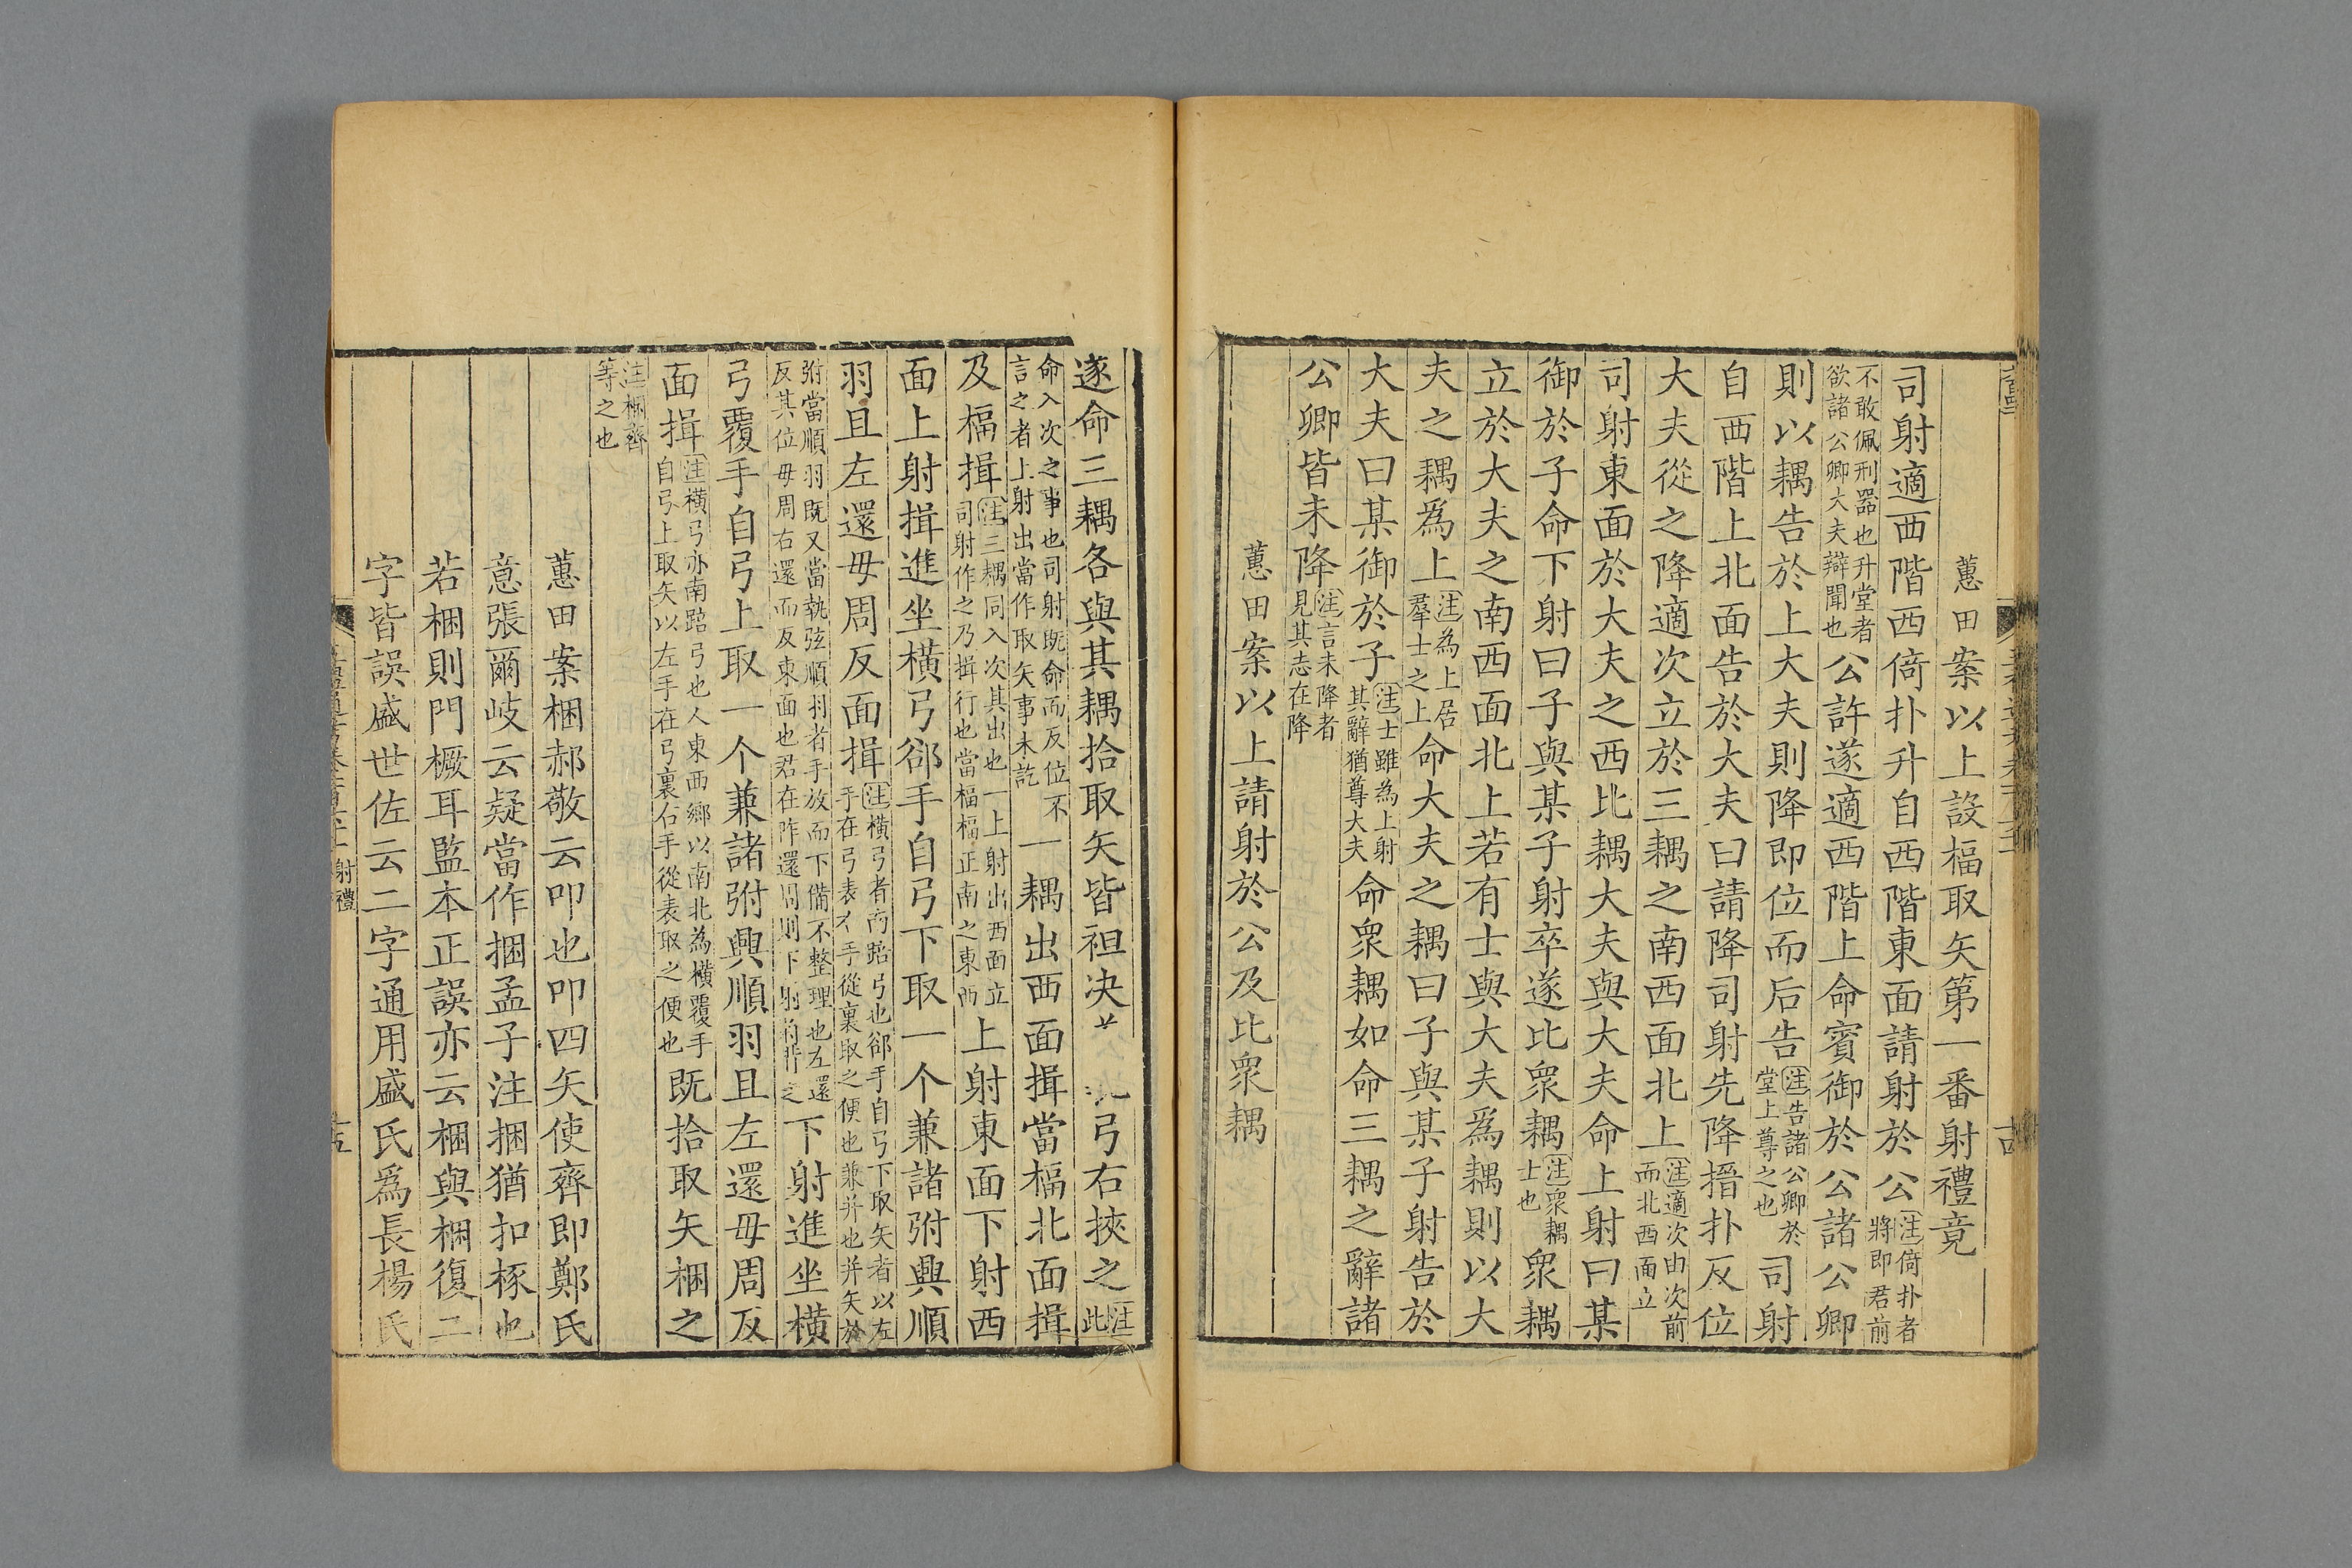 蕙田案以上設楅取矢第一番射禮竟
司射適西階西倚扑升自西階東面請射於公注倚扑者將即君前
不敢佩刑器也升堂者欲諸公卿大夫辯聞也公許遂適西階上命賓御於公諸公卿
則以耦告於上大夫則降即位而后告注告諸公卿於堂上尊之也司射
自西階上北面告於大夫曰請降司射先降搢扑反位
大夫從之降適次立於三耦之南西面北上注適次由次前而北西面立
司射東面於大夫之西比耦大夫與大夫命上射曰某
御於子命下射曰子與某子射卒遂比眾耦注眾耦士也眾耦
立於大夫之南西面北上若有士與大夫爲耦則以大
夫之耦爲上注為上居羣士之上命大夫之耦曰子與某子射告於
大夫曰某御於子注士雖為上射其辭猶尊大夫命眾耦如命三耦之辭諸
公卿皆未降注言未降者見其志在降
蕙田案以上請射於公及比眾耦
遂命三耦各與其耦拾取矢皆袒決弓右挾之注此
命入次之事也司射既命而反位不言之者上射出當作取矢事未訖一耦出西面揖當楅北面揖
及楅揖注三耦同入次其出也一上射出西面立司射作之乃揖行也當楅楅正南之東西上射東面下射西
面上射揖進坐橫弓郤手自弓下取一个兼諸弣興順
羽且左還毋周反面揖注橫弓者南踣弓也郤手自弓下取矢者以左手在弓表右手從裏取之便也兼并也并矢於
弣當順羽既又當執弦順羽者手放而下備不整理也左還反其位毋周右還而反東面也君在阼還周則下射進坐橫
弓覆手自弓上取一个兼諸弣興順羽且左還毋周反
面揖注橫弓亦南踣弓也人東西鄉以南北為橫覆手自弓上取矢以左手在弓裏右手從表取之便也既拾取矢梱之
注梱齊等之也
蕙田案梱郝敬云叩也叩四矢使齊即鄭氏
意張爾岐云疑當作捆孟子注捆猶扣㧻也
若梱則門橛耳監本正誤亦云梱與梱復二
字皆誤盛世佐云二字通用盛氏爲長楊氏
射禮